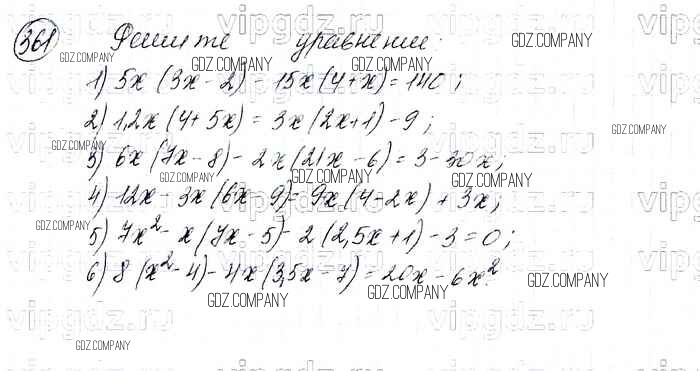 361 Решите уравнение:
1) 5x (3x - 2) - 15x (4 + x) = 140;
2) 1,2x (4 + 5x) = 3x (2x + 1) - 9;
3) 6x (7x - 8) - 2x (21x - 6) = 3 - 30x;
4) 12x - 3x (6x - 9) = 9x (4 - 2x) + 3x;
5) 7x² - x (7x - 5) - 2 (2,5x + 1) - 3 = 0;
6) 8 (x² - 4) - 4x (3,5x - 7) = 20x - 6x².
GDZ.COMPANY
vipgdz.ru